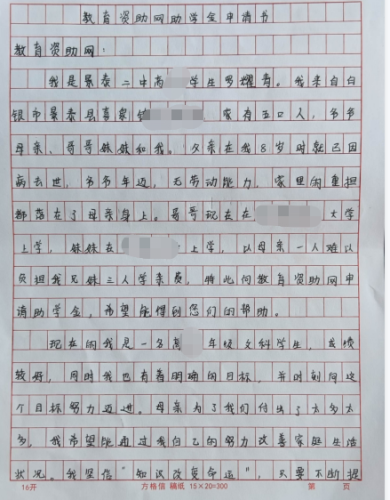 教育资助网助学金申请书
教育资助网：
我是景泰二中高 学生罗耀青。我来自白
银市景泰县喜泉镇 家有五口人，爷爷
母亲、哥哥妹妹和我。父亲在我8岁时就已因
病去世，爷爷年迈，无劳动能力，家里的重担
都落在了母亲身上。哥哥现在在 大学
上学，妹妹在 上学，以母亲一人难以
负担我兄妹三人学杂费，特此向教育资助网申
请助学金，希望能得到您们的帮助。
现在的我是一名高 年级文科学生，成绩
较好，同时我也有着明确的目标，并时刻向这
个目标努力迈进。母亲为了我们付出了太多太
多，我希望能通过我自己的努力改善家庭生活
状况。我坚信“知识改变命运”，只要不断提
16开 方格信 稿纸 15×20=300 第 页